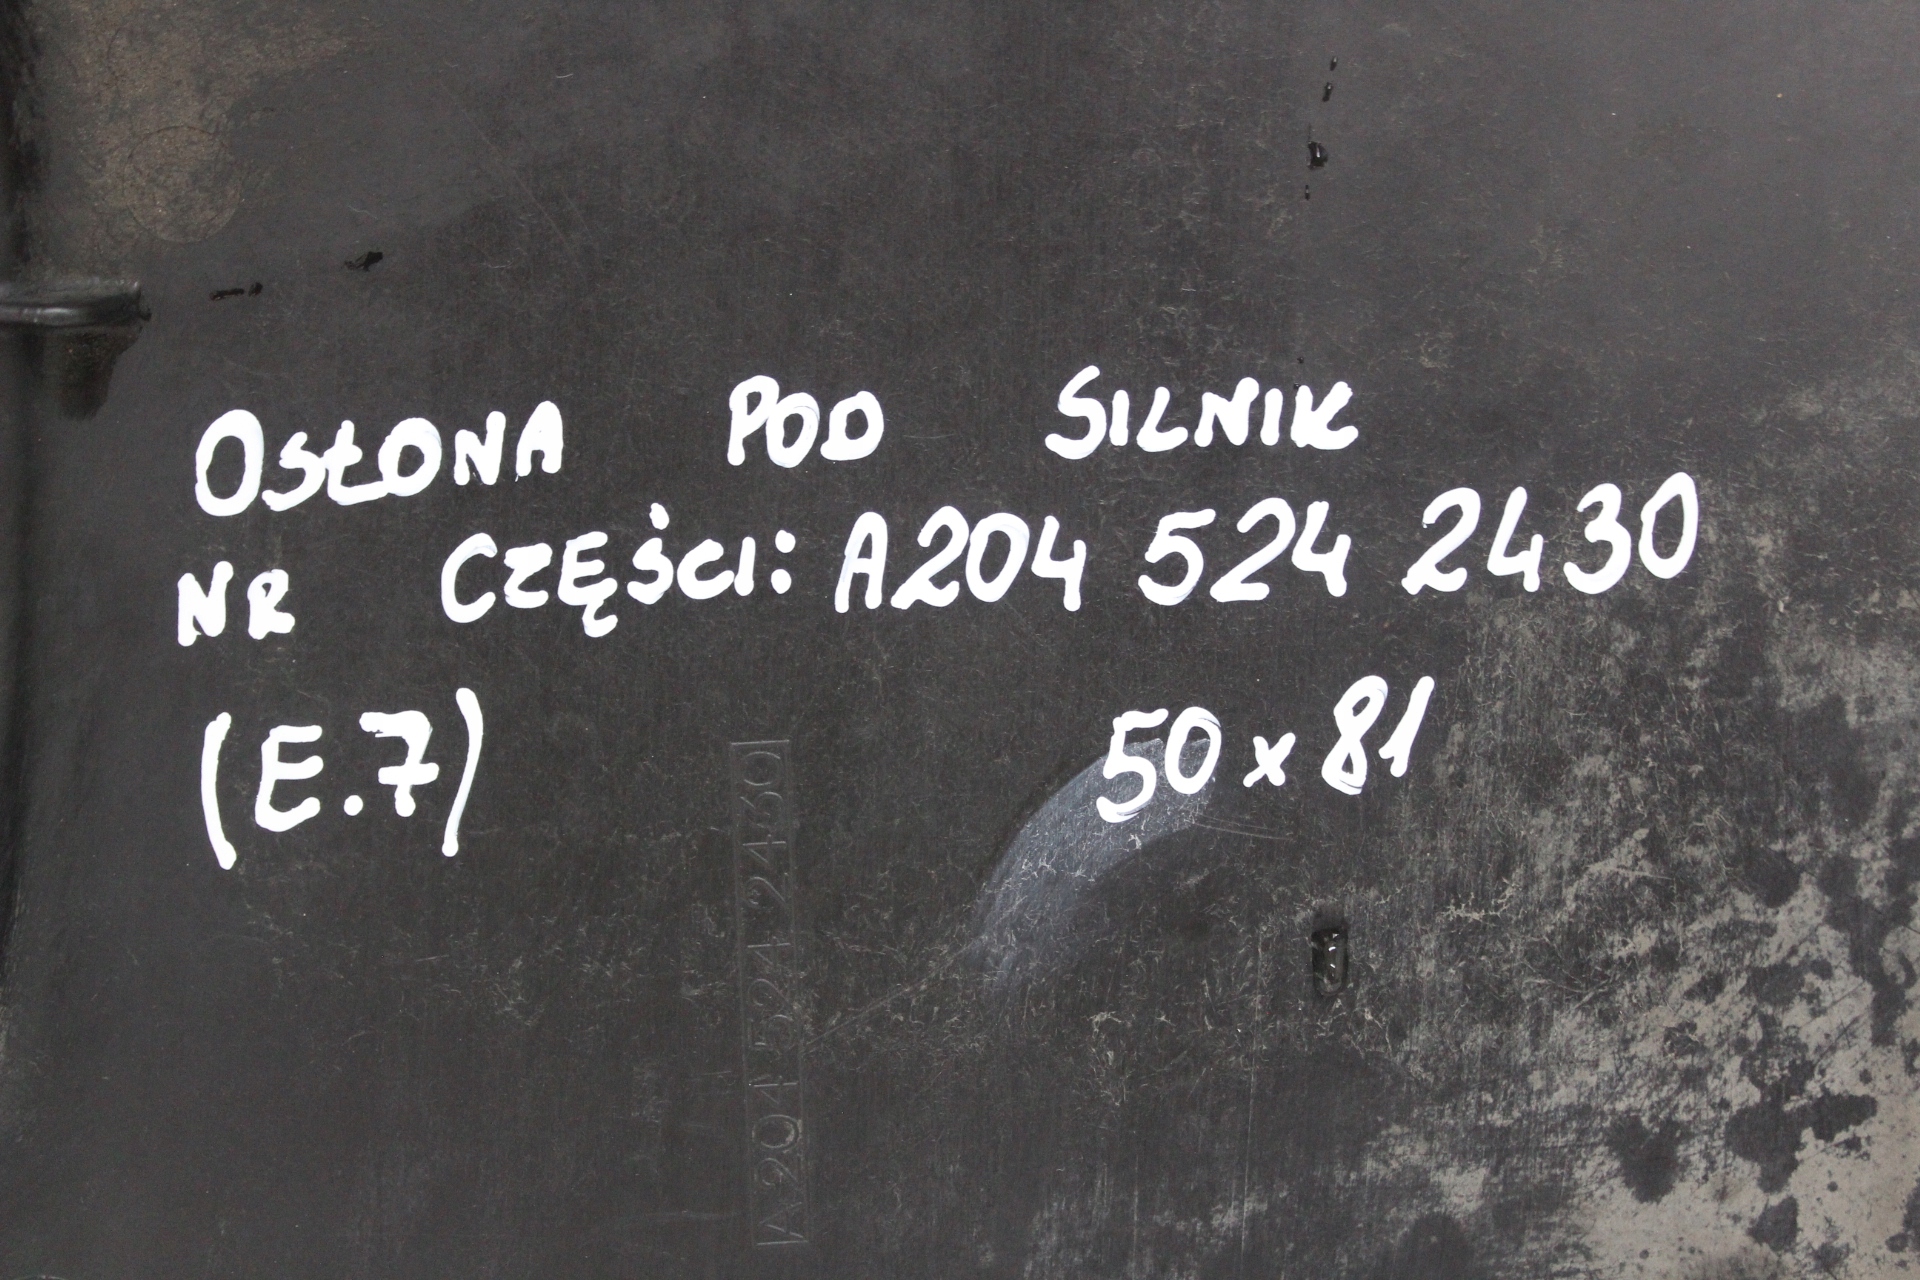 OSŁONA POD SILNIK
NR CZĘŚCI: A204 524 2430
(E.7) 50 x 81
A 204 524 24 30